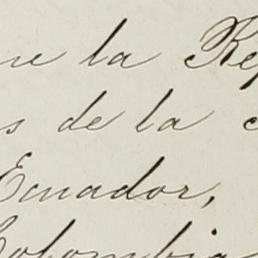 ne la Re
s de la c
Ecuador,
Colombia